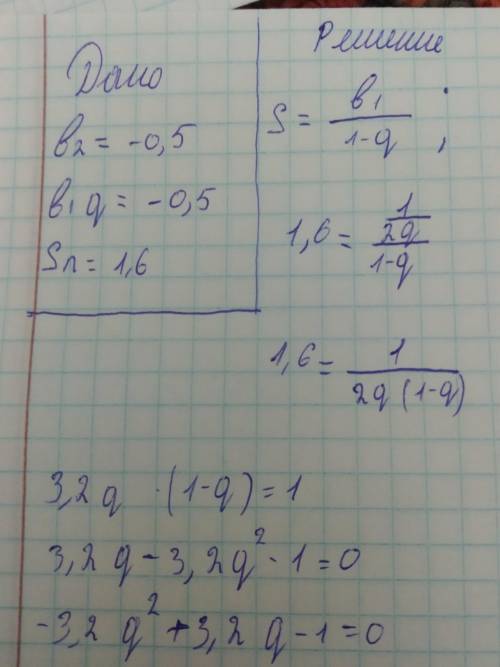 Дано
b₂ = -0,5
b₁q = -0,5
Sn = 1,6
Решение
S = b₁/(1-q) ;
1,6 = (1/2q)/(1-q)
1,6 = 1/(2q(1-q))
3,2q · (1-q) = 1
3,2q - 3,2q² - 1 = 0
-3,2q² + 3,2q - 1 = 0